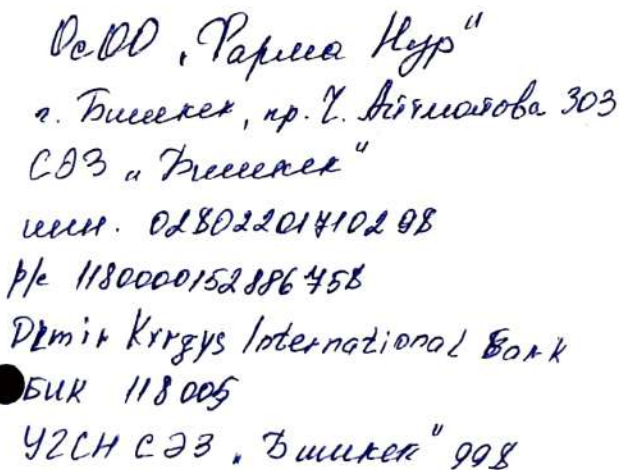 ОсОО „Фарма Нур"
г. Бишкек, пр. Ч. Айтматова 303
СЭЗ „Бишкек"
инн. 02802201710298
р/с 1180000152886758
Demir Kyrgys International Bank
БИК 118005
УГСН СЭЗ „Бишкек" 998